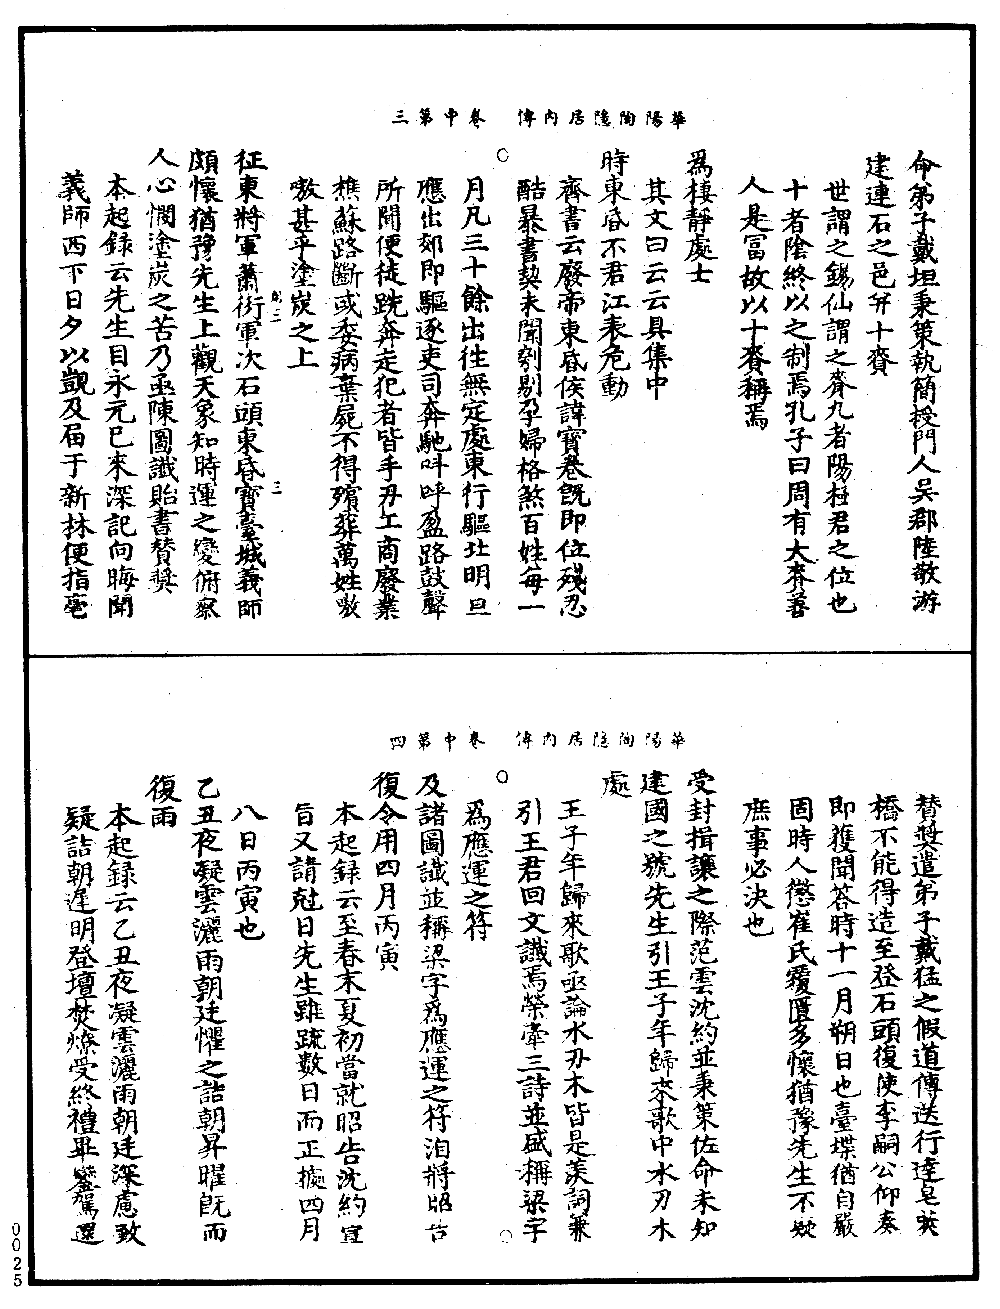 華陽陶隱居內傳　卷中第三
命弟子戴坦秉策執簡授門人吳郡陸敬游
建連石之邑并十賚
世謂之錫仙謂之賚九者陽極君之位也
十者陰終以之制焉孔子曰周有大賚善
人是富故以十賚稱焉
為棲靜處士
其文曰云云具集中
時東昏不君江表危動
齊書云廢帝東昏侯諱寶卷旣即位殘忍
酷暴書契未聞刳剔孕婦格煞百姓每一
月凡三十餘出往無定處東行驅北明旦
應出郊即驅逐吏司奔馳叫呼盈路鼓聲
所聞便徒跣奔走犯者皆手刃工商廢業
樵蘇路斷或委病棄屍不得殯葬萬姓嗷
嗷甚乎塗炭之上
征東將軍蕭衍軍次石頭東昏寶臺城義師
頗懷猶豫先生上觀天象知時運之變俯察
人心憫塗炭之苦乃亟陳圖讖貽書贊獎
本起錄云先生自永元巳來深記向晦聞
義師西下日夕以覬及屆于新林便指毫
華陽陶隱居內傳　卷中第四
贊獎遣弟子戴猛之假道傳送行達皂莢
橋不能得造至登石頭復使李嗣公仰奏
即獲聞答時十一月朔日也臺堞猶自嚴
固時人懲崔氏覆匱多懷猶豫先生不疑
庶事必決也
受封揖讓之際范雲沈約並秉策佐命未知
建國之號先生引王子年歸來歌中水刃木
處
王子年歸來歌亟論水刃木皆是美詞兼
引王君回文讖焉榮牽三詩並盛稱梁字
為應運之符
及諸圖讖並稱梁字為應運之符洎將昭告
復令用四月丙寅
本起錄云至春末夏初當就昭告沈約宣
旨又請尅日先生雖疏數日而正擬四月
八日丙寅也
乙丑夜凝雲灑雨朝廷懼之詰朝昇曜旣而
復雨
本起錄云乙丑夜凝雲灑雨朝廷深慮致
疑詰朝遲明登壇焚燎受終禮畢鑾駕還
0025